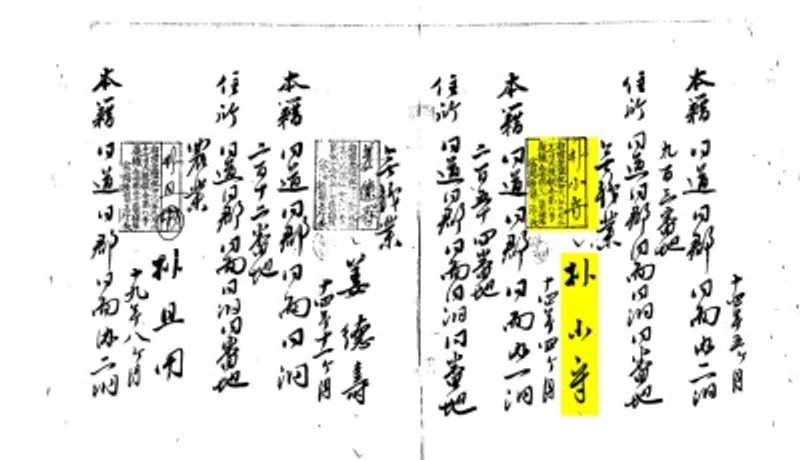 十四年五ヶ月
本籍 同道同郡同面内二洞
九百三番地
住所 同道同郡同面同洞同番地
無職業
朴小守
十四年四ヶ月
本籍 同道同郡同面内一洞
二百五十四番地
住所 同道同郡同面同洞同番地
無職業
姜德寿
十四年十一ヶ月
本籍 同道同郡同面同洞
二百十二番地
住所 同道同郡同面同洞同番地
農業
朴且用
十九年八ヶ月
本籍 同道同郡同面内二洞